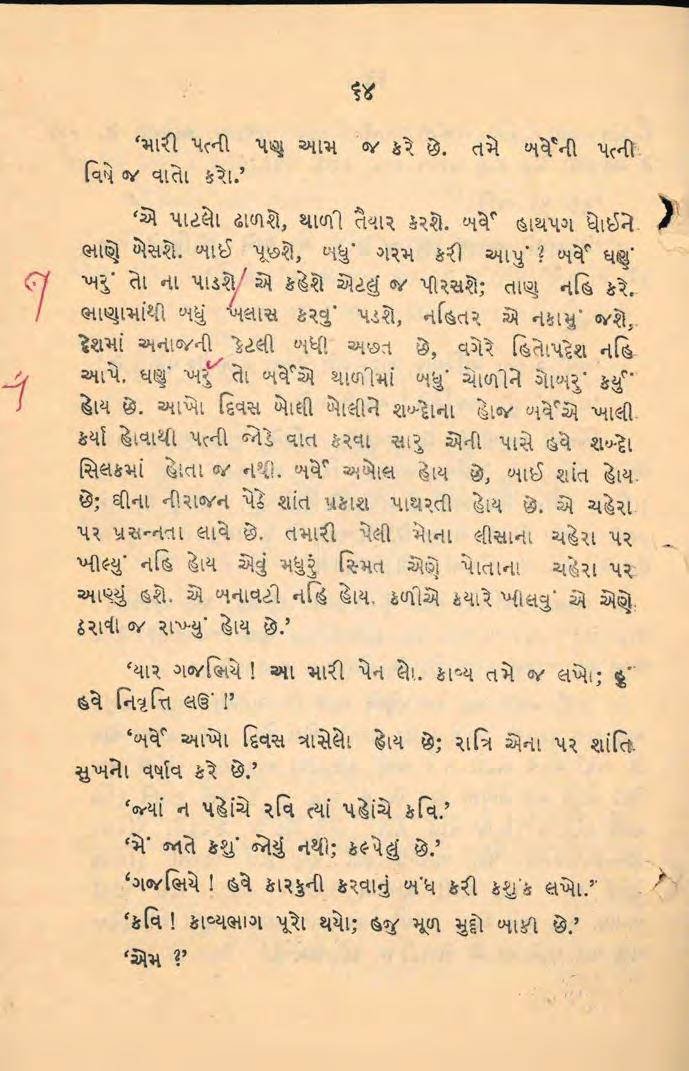 ૬૪
‘મારી પત્ની પણ આમ જ કરે છે. તમે બર્વેની પત્ની
વિષે જ વાતો કરો.’
‘એ પાટલો ઢાળશે, થાળી તૈયાર કરશે. બર્વે હાથપગ ધોઈને
ભાણે બેસશે. બાઈ પૂછશે, બધું ગરમ કરી આપું ? બર્વે ઘણું
ખરું તો ના પાડશે/ એ કહેશે એટલું જ પીરસશે; તાણ નહિ કરે.
ભાણામાંથી બધું ખલાસ કરવું પડશે, નહિતર એ નકામું જશે,
દેશમાં અનાજની કેટલી બધી અછત છે, વગેરે હિતોપદેશ નહિ
આપે. ઘણું ખરું તો બર્વેએ થાળીમાં બધું ચોળીને ગોબરું કર્યું
હોય છે. આખો દિવસ બોલી બોલીને શબ્દોના હોજ બર્વેએ ખાલી
કર્યા હોવાથી પત્ની જોડે વાત કરવા સારુ એની પાસે હવે શબ્દો
સિલકમાં હોતા જ નથી. બર્વે અબોલ હોય છે, બાઈ શાંત હોય
છે; ઘીના નીરાજન પેઠે શાંત પ્રકાશ પાથરતી હોય છે. એ ચહેરા
પર પ્રસન્નતા લાવે છે. તમારી પેલી મોના લીસાના ચહેરા પર
ખીલ્યું નહિ હોય એવું મધુરું સ્મિત એણે પોતાના ચહેરા પર
આણ્યું હશે. એ બનાવટી નહિ હોય. કળીએ કયારે ખીલવું એ એણે
ઠરાવી જ રાખ્યું હોય છે.’
‘યાર ગજભિયે ! આ મારી પેન લો. કાવ્ય તમે જ લખો; હું
હવે નિવૃત્તિ લઉં !’
‘બર્વે આખો દિવસ ત્રાસેલો હોય છે; રાત્રિ એના પર શાંતિ
સુખનો વર્ષાવ કરે છે.’
‘જ્યાં ન પહોંચે રવિ ત્યાં પહોંચે કવિ.’
‘મેં જાતે કશું જોયું નથી; કલ્પેલું છે.’
‘ગજભિયે ! હવે કારકુની કરવાનું બંધ કરી કશુંક લખો.’
‘કવિ ! કાવ્યભાગ પૂરો થયો; હજુ મૂળ મુદ્દો બાકી છે.’
‘એમ ?’